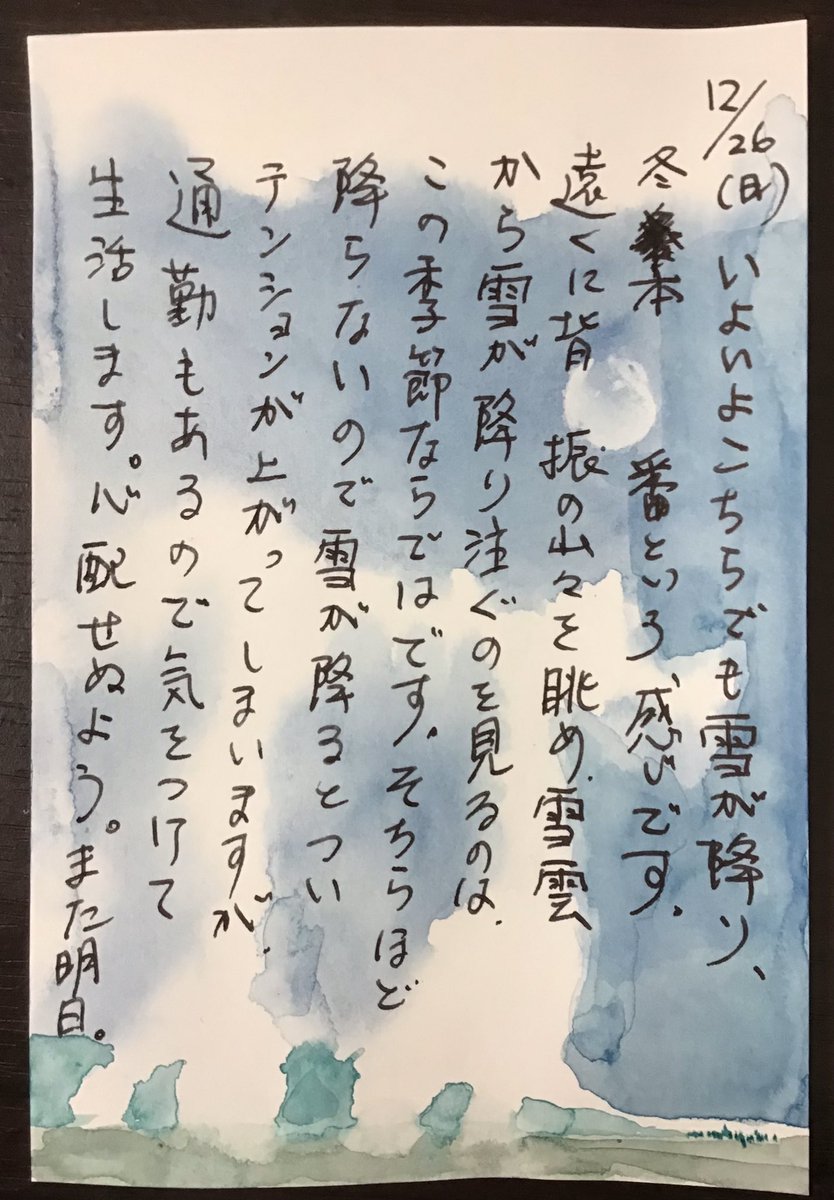 12/26(日)いよいよこちらでも雪が降り、
冬本番という感じです。
遠くに背振の山々を眺め、雪雲
から雪が降り注ぐのを見るのは、
この季節ならではです。そちらほど
降らないので雪が降るとつい
テンションが上がってしまいますが、
通勤もあるので気をつけて
生活します。心配せぬよう。また明日。